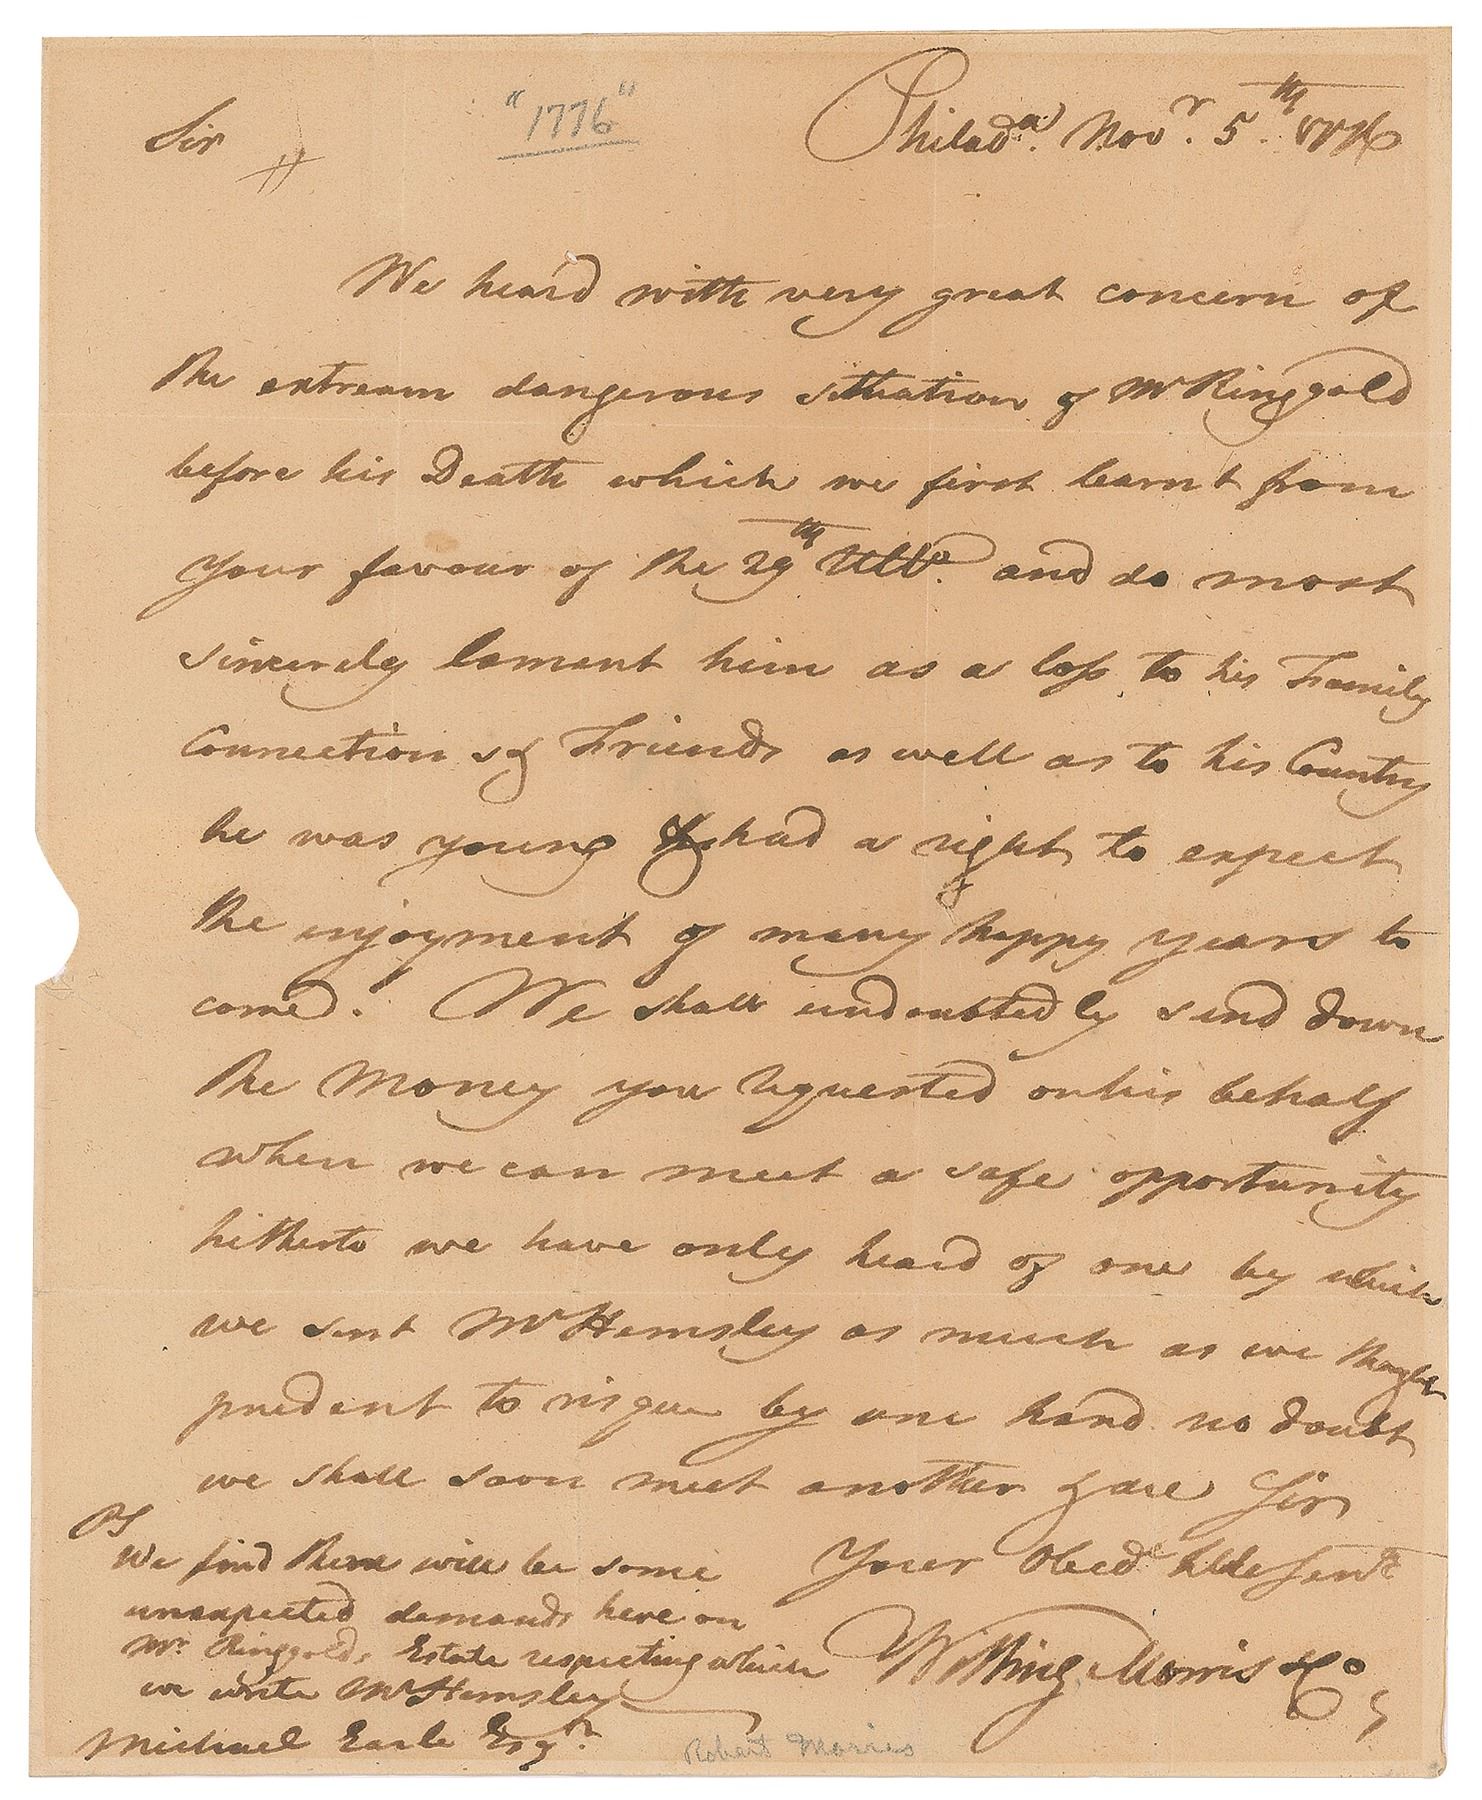 "1776"
Philada. Novr. 5th. 1776
Sir
We heard with very great concern of
the extream dangerous situation of Mr Ringgold
before his Death which we first learnt from
your favour of the 29th Ulto. and do most
sincerely lament him as a loss to his Family
Connections & Friends as well as to his Country
he was young & had a right to expect
the enjoyment of many happy years to
come. We shall undoubtedly send down
the Money you requested on his behalf
when we can meet a safe opportunity
hitherto we have only heard of one by which
we sent Mr Hemsley as much as we thought
prudent to risque by one hand no doubt
we shall soon meet another & are Sir
Your Obedt hble Servts
Willing Morris & Co
PS
We find there will be some
unexpected demands here on
Mr. Ringgolds Estate respecting which
we write Mr Hemsley
Michael Earle Esqr.
Robert Morris